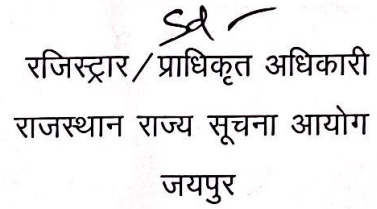 Sd-
रजिस्ट्रार/प्राधिकृत अधिकारी
राजस्थान राज्य सूचना आयोग
जयपुर